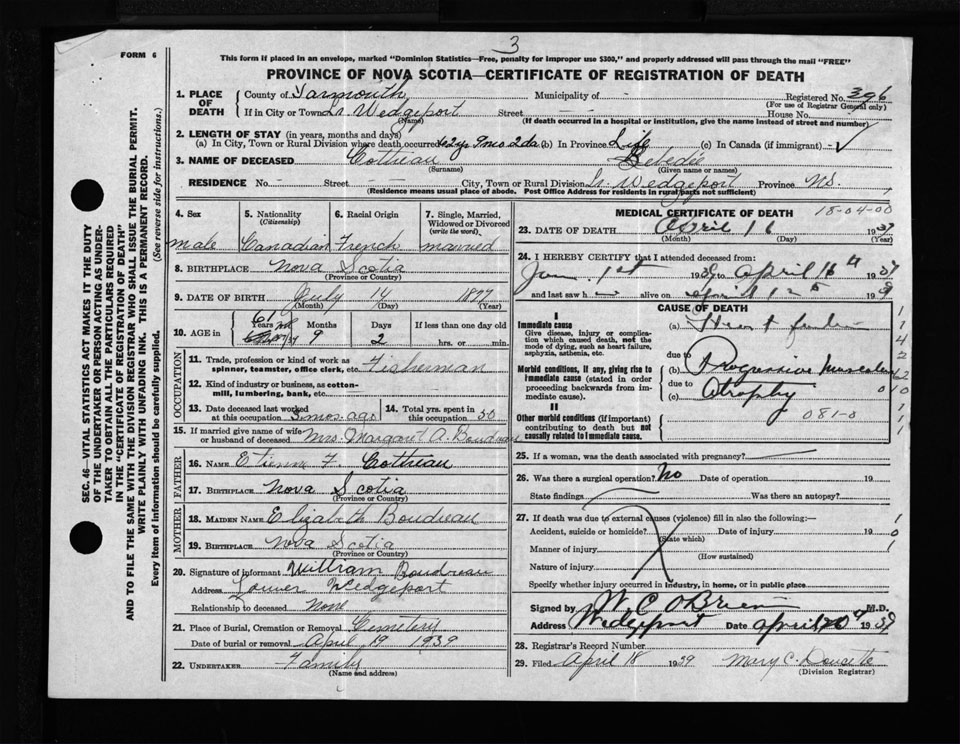 3
FORM 6
This form if placed in an envelope, marked "Dominion Statistics—Free, penalty for improper use $300," and properly addressed will pass through the mail "FREE"
PROVINCE OF NOVA SCOTIA—CERTIFICATE OF REGISTRATION OF DEATH
SEC. 46—VITAL STATISTICS ACT MAKES IT THE DUTY
OF THE UNDERTAKER OR PERSON ACTING AS UNDER-
TAKER TO OBTAIN ALL THE PARTICULARS REQUIRED
IN THE "CERTIFICATE OF REGISTRATION OF DEATH"
AND TO FILE THE SAME WITH THE DIVISION REGISTRAR WHO SHALL ISSUE THE BURIAL PERMIT.
WRITE PLAINLY WITH UNFADING INK. THIS IS A PERMANENT RECORD.
Every item of information should be carefully supplied. (See reverse side for instructions.)
1. PLACE OF DEATH County of Yarmouth Municipality of - Registered No. 396
(For use of Registrar General only)
If in City or Town Lr Wedgeport Street - House No.
(Name) (If death occurred in a hospital or institution, give the name instead of street and number)
2. LENGTH OF STAY (in years, months and days)
(a) In City, Town or Rural Division where death occurred 9mo 2da (b) In Province Life (c) In Canada (if immigrant) -
3. NAME OF DECEASED Cottreau
(Surname) (Given name or names)
RESIDENCE No. - Street - City, Town or Rural Division Lr Wedgeport Province N.S.
(Residence means usual place of abode. Post Office Address for residents in rural parts not sufficient)
4. Sex
male
5. Nationality
(Citizenship)
Canadian
6. Racial Origin
French
7. Single, Married,
Widowed or Divorced
(write the word)
married
8. BIRTHPLACE Nova Scotia
(Province or Country)
9. DATE OF BIRTH July 14 1877
(Month) (Day) (Year)
10. AGE in 61 Years 9 Months 2 Days If less than one day old
hrs. or min.
OCCUPATION
11. Trade, profession or kind of work as
spinner, teamster, office clerk, etc. Fisherman
12. Kind of industry or business, as cotton-
mill, lumbering, bank, etc.
13. Date deceased last worked
at this occupation 3 mos. ago
14. Total yrs. spent in
this occupation 50
15. If married give name of wife
or husband of deceased Mrs. Margaret A. Boudreau
FATHER
16. NAME Etienne F. Cottreau
17. BIRTHPLACE Nova Scotia
(Province or Country)
MOTHER
18. MAIDEN NAME Elizabeth Boudreau
19. BIRTHPLACE Nova Scotia
(Province or Country)
20. Signature of informant William Boudreau
Address Lower Wedgeport
Relationship to deceased None
21. Place of Burial, Cremation or Removal Cemetery
Date of burial or removal April 19 1939
22. UNDERTAKER Family
(Name and address)
MEDICAL CERTIFICATE OF DEATH 18-04-00
23. DATE OF DEATH April 16 1939
(Month) (Day) (Year)
24. I HEREBY CERTIFY that I attended deceased from:
Jan 1st 1939 to April 16th 1939
and last saw h alive on April 1939
CAUSE OF DEATH
I
Immediate cause
Give disease, injury or complica-
tion which caused death, not the
mode of dying, such as heart failure,
asphyxia, asthenia, etc.
(a) Heart failure
Morbid conditions, if any, giving rise to
immediate cause (stated in order
proceeding backwards from im-
mediate cause).
due to
(b) Progressive Muscular
due to
(c) Atrophy
II
Other morbid conditions (if important)
contributing to death but not
causally related to immediate cause.
081-0
25. If a woman, was the death associated with pregnancy?
26. Was there a surgical operation? No Date of operation 19
State findings Was there an autopsy?
27. If death was due to external causes (violence) fill in also the following:—
Accident, suicide or homicide? Date of injury 19
(State which)
Manner of injury
(How sustained)
Nature of injury
Specify whether injury occurred in industry, in home, or in public place
Signed by W C O'Brien M.D.
Address Wedgeport Date April 20th 1939
28. Registrar's Record Number
29. Filed April 18 1939 Mary C. Doucette
(Division Registrar)